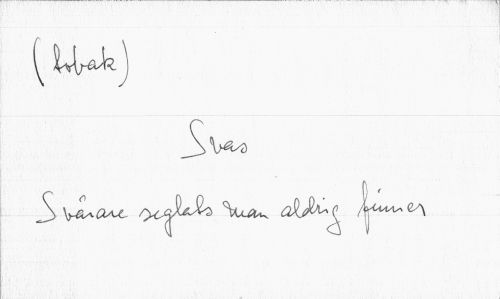 (tobak)
Svas
Svårare seglats man aldrig finner